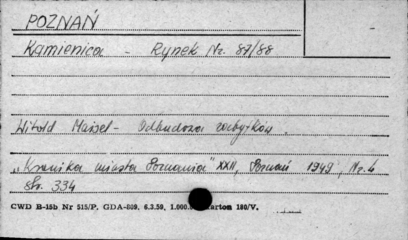 POZNAŃ
Kamienica - Rynek Nr. 87/88
Witold Maisel - Odbudowa zabytków.
"Kronika miasta Poznania" XXII, Poznań 1949, Nr. 4
Str. 334
CWD B-15b Nr 515/P. GDA-809. 6.3.59, 1.000.0 Karton 180/V.